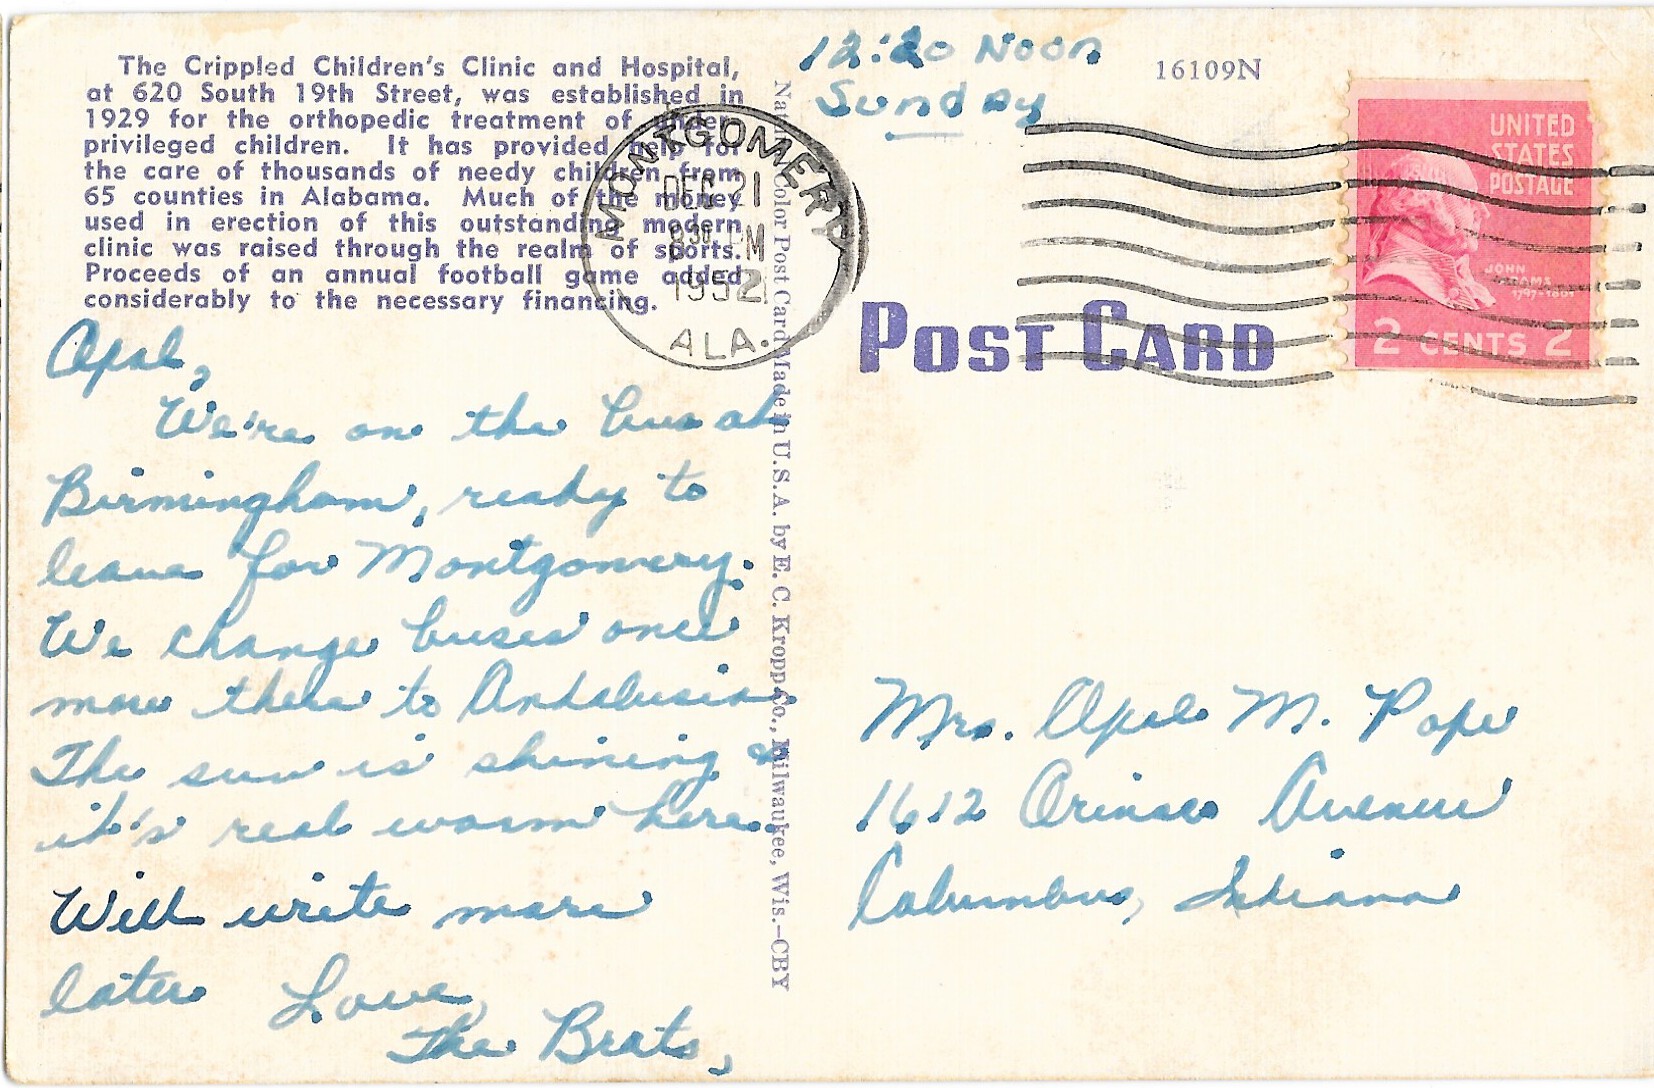 The Crippled Children's Clinic and Hospital,
at 620 South 19th Street, was established in
1929 for the orthopedic treatment of under
privileged children. It has provided help for
the care of thousands of needy children from
65 counties in Alabama. Much of the money
used in erection of this outstanding modern
clinic was raised through the realm of sports.
Proceeds of an annual football game added
considerably to the necessary financing.
12:20 Noon
Sunday
16109N
MONTGOMERY
DEC 21
8 30 PM
1952
ALA.
UNITED
STATES
POSTAGE
JOHN
ADAMS
1797-1801
2 CENTS 2
POST CARD
Natural Color Post Card Made in U.S.A. by E. C. Kropp Co., Milwaukee, Wis.—CBY
Opal,
We're on the bus at
Birmingham, ready to
leave for Montgomery.
We change buses once
more there to Andalusia.
The sun is shining &
it's real warm here.
Will write more
later Love,
The Brats,
Mrs. Opal M. Pope
1612 Orinoco Avenue
Columbus, Indiana